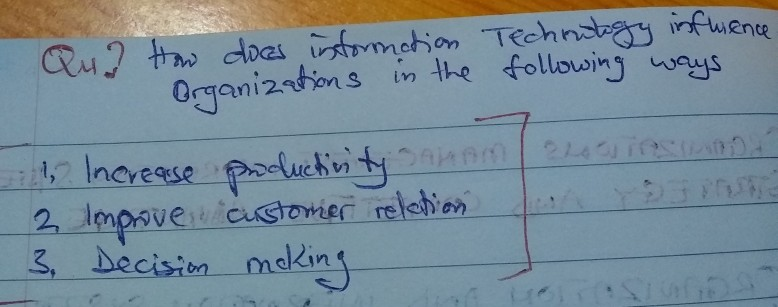 Qu? How does information Technology influence
Organizations in the following ways
1, Increase productivity
2, Improve customer relation
3, Decision making